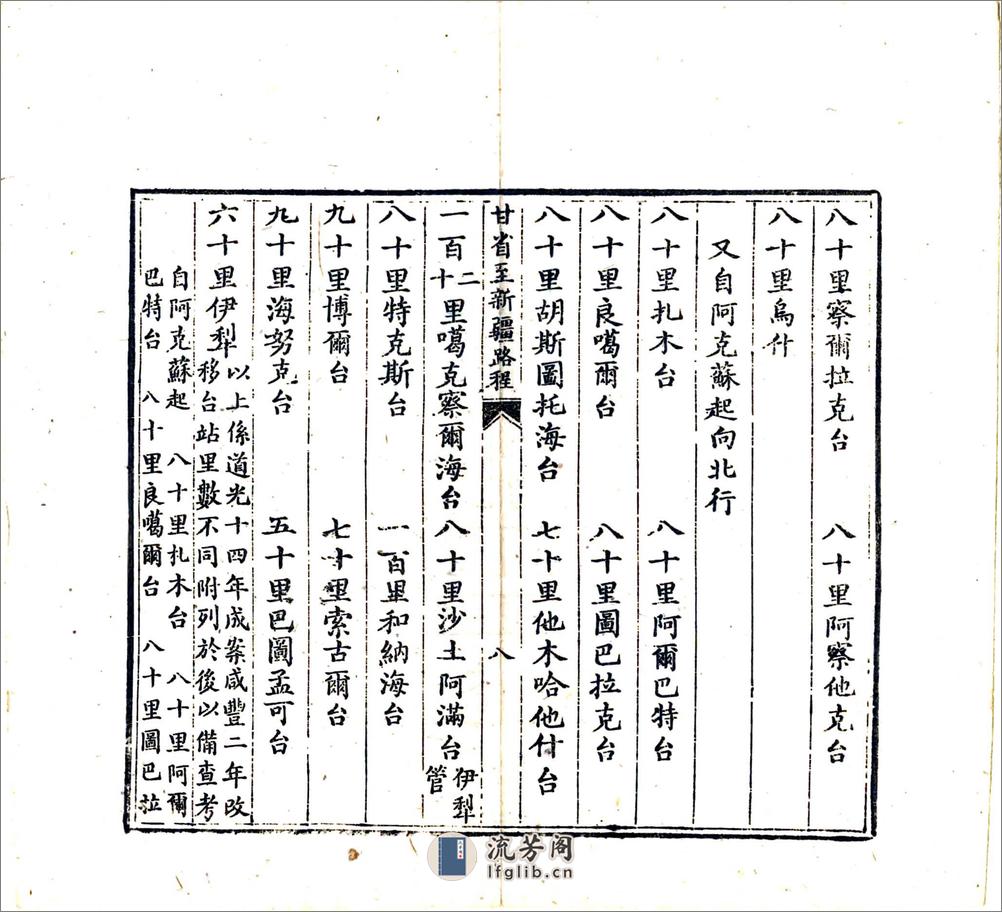 八十里察爾拉克台　八十里阿察他克台
八十里烏什
又自阿克蘇起向北行
八十里扎木台　八十里阿爾巴特台
八十里良噶爾台　八十里圖巴拉克台
八十里胡斯圖托海台　七十里他木哈他什台
甘省至新疆路程　八
一百二十里噶克察爾海台　八十里沙土阿滿台伊犁管
八十里特克斯台　一百里和納海台
九十里博爾台　七十里索古爾台
九十里海努克台　五十里巴圖孟可台
六十里伊犁以上係道光十四年成案咸豐二年改
移台站里數不同附列於後以備查考
自阿克蘇起　八十里札木台　八十里阿爾
巴特台　八十里良噶爾台　八十里圖巴拉
流芳阁
lfglib.cn